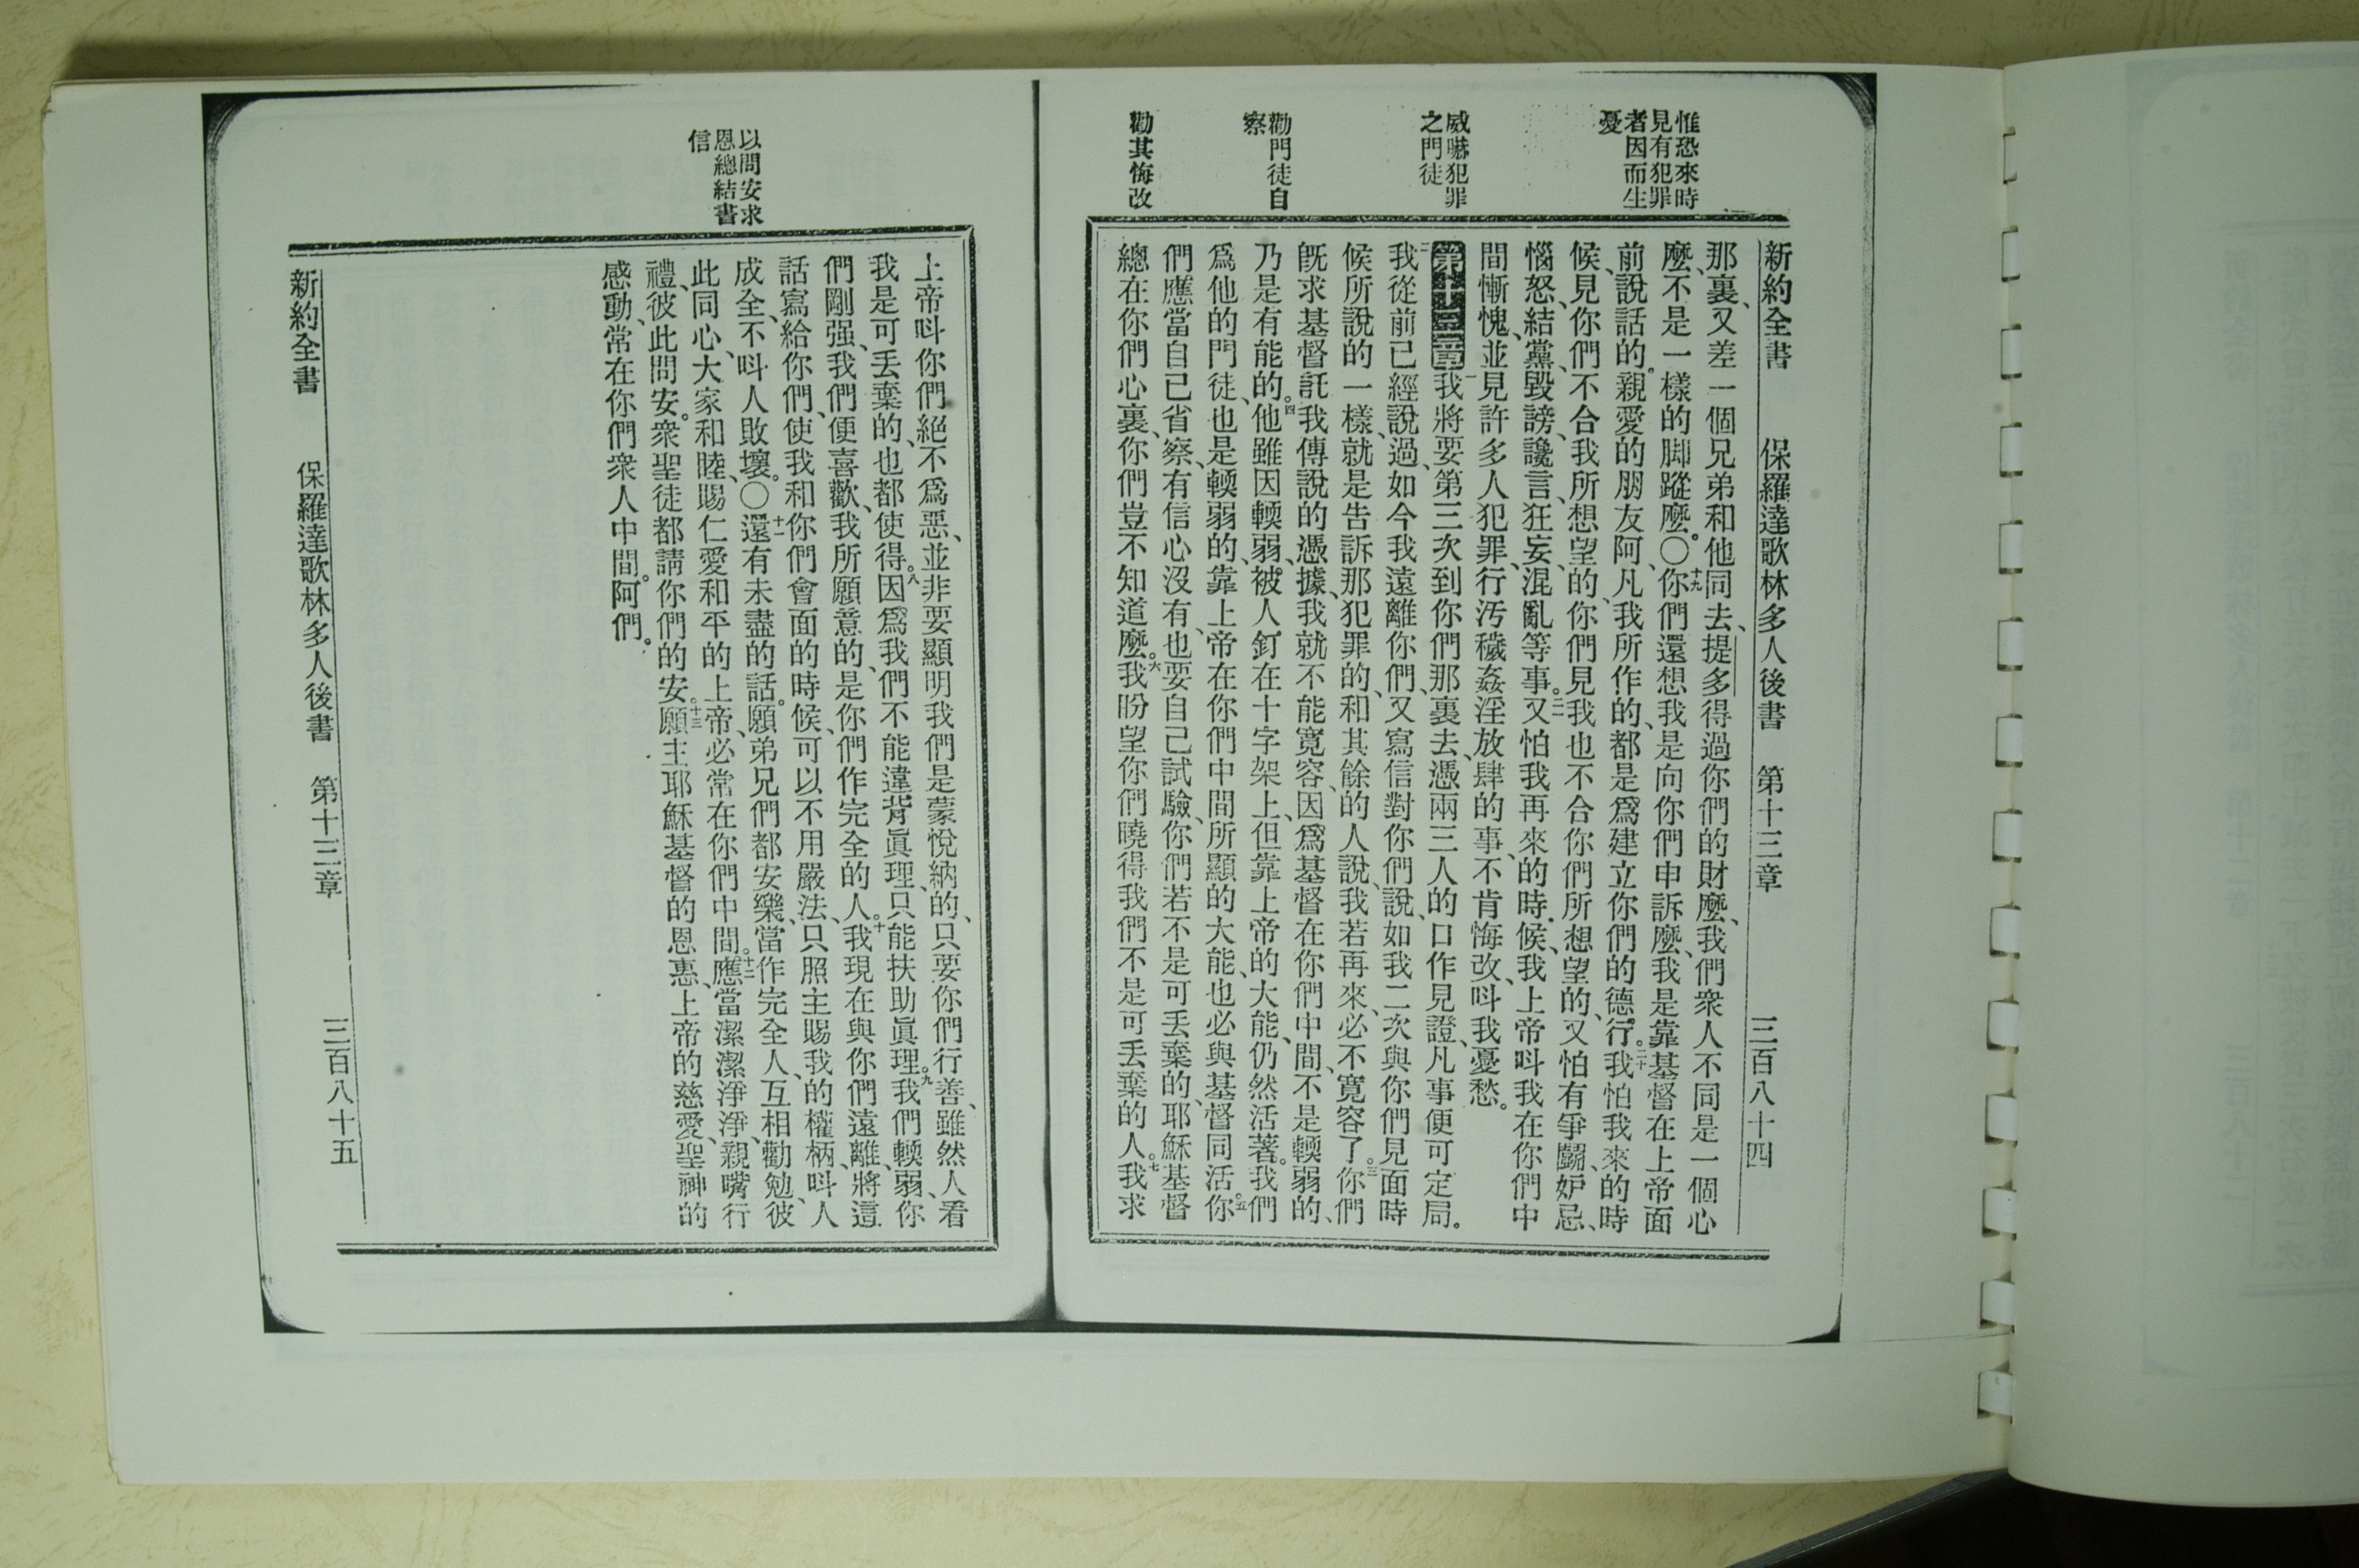 惟恐來時
見有犯罪
者因而生
憂
威嚇犯罪
之門徒
勸門徒自
察
勸其悔改
新約全書 保羅達歌林多人後書 第十三章 三百八十四
那裏、又差一個兄弟和他同去、提多得過你們的財麼、我們衆人不同是一個心
麼、不是一樣的脚蹤麼。〇十九你們還想我是向你們申訴麼、我是靠基督在上帝面
前說話的。親愛的朋友阿、凡我所作的、都是爲建立你們的德行。二十我怕我來的時
候、見你們不合我所想望的、你們見我也不合你們所想望的、又怕有爭鬭、妒忌、
惱怒、結黨、毀謗、讒言、狂妄、混亂等事。二一又怕我再來的時候、我上帝呌我在你們中
間慚愧、並見許多人犯罪、行汚穢姦淫放肆的事、不肯悔改、呌我憂愁。
第十三章一我將要第三次到你們那裏去、憑兩三人的口作見證、凡事便可定局。
二我從前已經說過、如今我遠離你們、又寫信對你們說、如我二次與你們見面時
候所說的一樣、就是告訴那犯罪的、和其餘的人說、我若再來、必不寛容了。三你們
旣求基督託我傳說的憑據、我就不能寛容、因爲基督在你們中間、不是輭弱的、
乃是有能的。四他雖因輭弱、被人釘在十字架上、但靠上帝的大能、仍然活著。我們
爲他的門徒、也是輭弱的、靠上帝在你們中間所顯的大能、也必與基督同活。五你
們應當自己省察、有信心沒有、也要自己試驗、你們若不是可丟棄的、耶穌基督
總在你們心裏、你們豈不知道麼。六我盼望你們曉得我們不是可丟棄的人。七我求
以問安求
恩總結書
信
上帝呌你們絕不爲惡、並非要顯明我們是蒙悅納的、只要你們行善、雖然人看
我是可丟棄的、也都使得。八因爲我們不能違背眞理、只能扶助眞理。九我們輭弱、你
們剛强、我們便喜歡、我所願意的、是你們作完全的人。十我現在與你們遠離、將這
話寫給你們、使我和你們會面的時候、可以不用嚴法、只照主賜我的權柄、呌人
成全、不呌人敗壞。〇十一還有未盡的話。願弟兄們都安樂、當作完全人、互相勸勉、彼
此同心、大家和睦、賜仁愛和平的上帝、必常在你們中間。十二應當潔潔淨淨、親嘴行
禮、彼此問安。衆聖徒都請你們的安。十三願主耶穌基督的恩惠、上帝的慈愛、聖神的
感動、常在你們衆人中間。阿們。
新約全書 保羅達歌林多人後書 第十三章 三百八十五